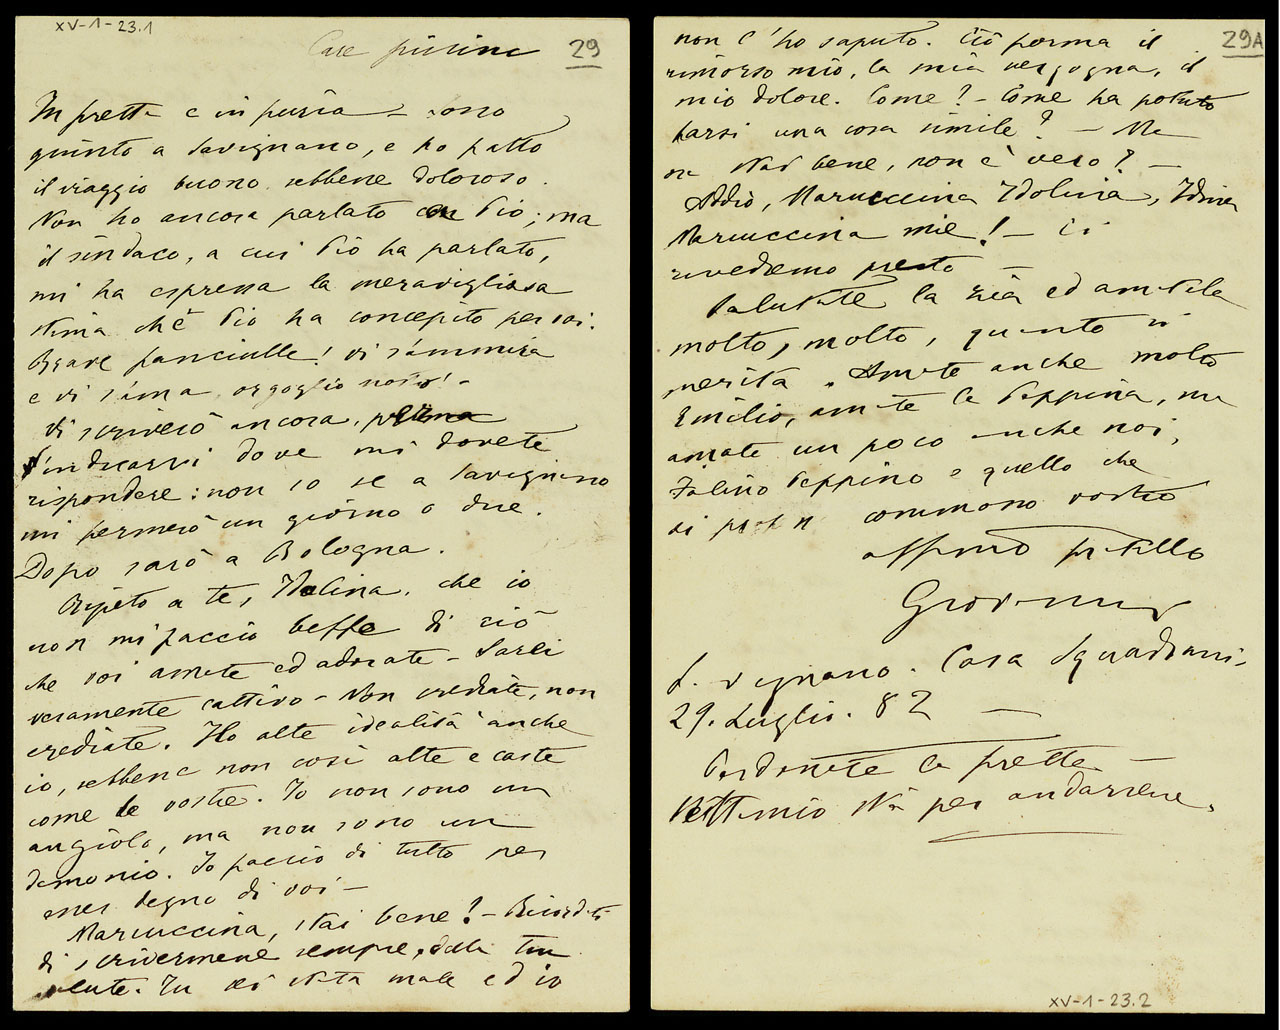 XV-1-23.1
Care piccine
29
In fretta e in furia — sono
giunto a Savignano, e ho fatto
il viaggio buono sebbene doloroso.
Non ho ancora parlato con Pio; ma
il sindaco, a cui Pio ha parlato,
mi ha espressa la meravigliosa
stima chè Pio ha concepito per voi.
Brave fanciulle! vi s'ammira
e vi s'ama, orgoglio nostro! -
Vi scriverò ancora,
indicarvi dove mi dovete
rispondere: non so se a Savignano
mi fermerò un giorno o due.
Dopo sarò a Bologna.
Ripeto a te, Idolina, che io
non mi faccio beffe di ciò
che voi amate ed adorate — Sarei
veramente cattivo — Non crediate, non
crediate. Ho alte idealità anche
io, sebbene non così alte e caste
come le vostre. Io non sono un
angiolo, ma non sono un
demonio. Io faccio di tutto per
esser degno di voi —
Mariuccina, stai bene? — Ricordati
di scrivermene sempre, della tua
salute. Tu sei stata male ed io
non l'ho saputo. Ciò forma il
rimorso mio, la mia vergogna, il
mio dolore. Come? — Come ha potuto
farsi una cosa simile? — Ma
ora stai bene, non è vero? —
Addio, Mariuccina Idolina, Idina
Mariuccina mie! — Ci
rivedremo presto —
Salutate la zia ed amatela
molto, molto, quanto si
merita. Amate anche molto
Emilio, amate la Peppina, ma
amate un poco anche noi,
Falino Peppino e quello che
si commosso vostro
affmo fratello
Giovanni
29A
Savignano. Casa Squadrani.
29. Luglio. 82 —
Perdonate la fretta —
Settimio sta per andarsene.
XV-1-23.2